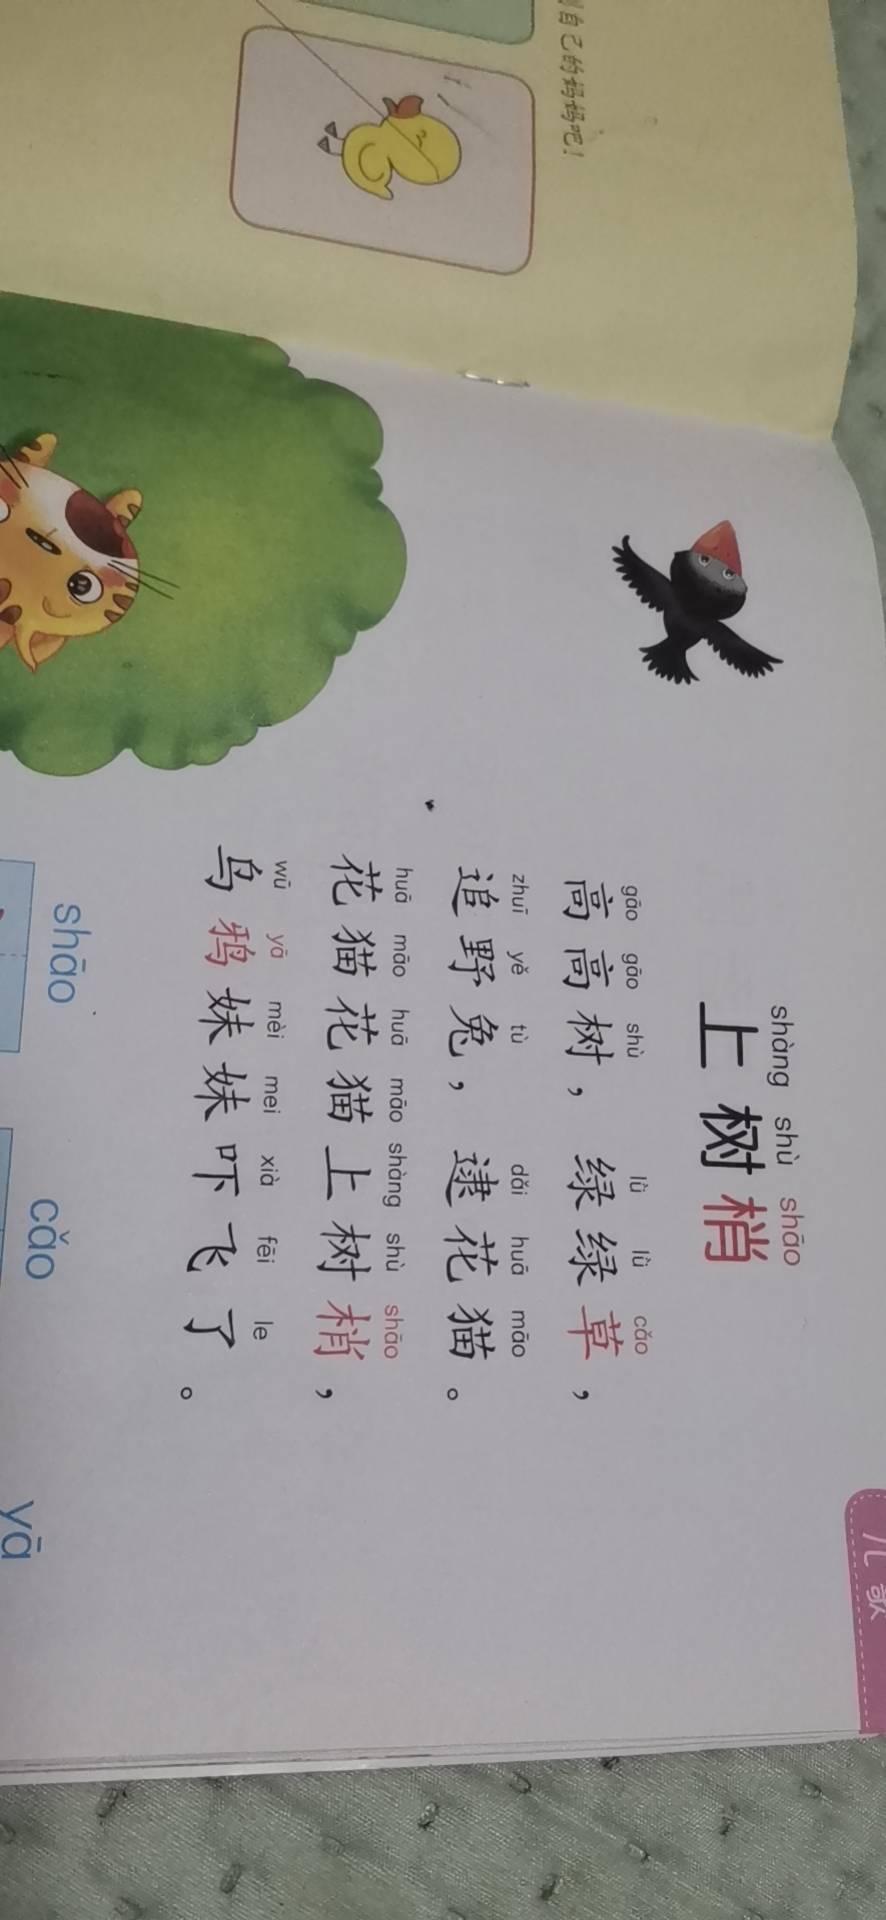 自己的妈妈吧！
儿歌
shàng shù shāo
上树梢
gāo gāo shù lǜ lǜ cǎo
高高树，绿绿草，
zhuī yě tù dǎi huā māo
追野兔，逮花猫。
huā māo huā māo shàng shù shāo
花猫花猫上树梢，
wū yā mèi mei xià fēi le
乌鸦妹妹吓飞了。
shāo cǎo yā